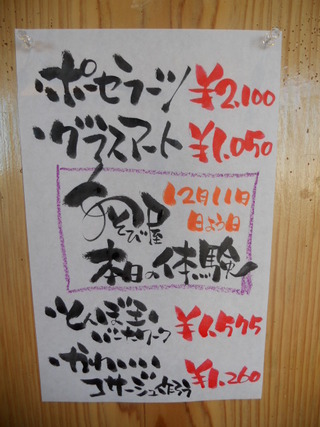 ・ポーセラーツ ¥2,100
・グラスアート ¥1,050
あそび屋 12月11日
日よう日
本日の体験
・とんぼ玉 ¥1,575
バーナーワーク
・かわいい ¥1,260
コサージュ作ろう